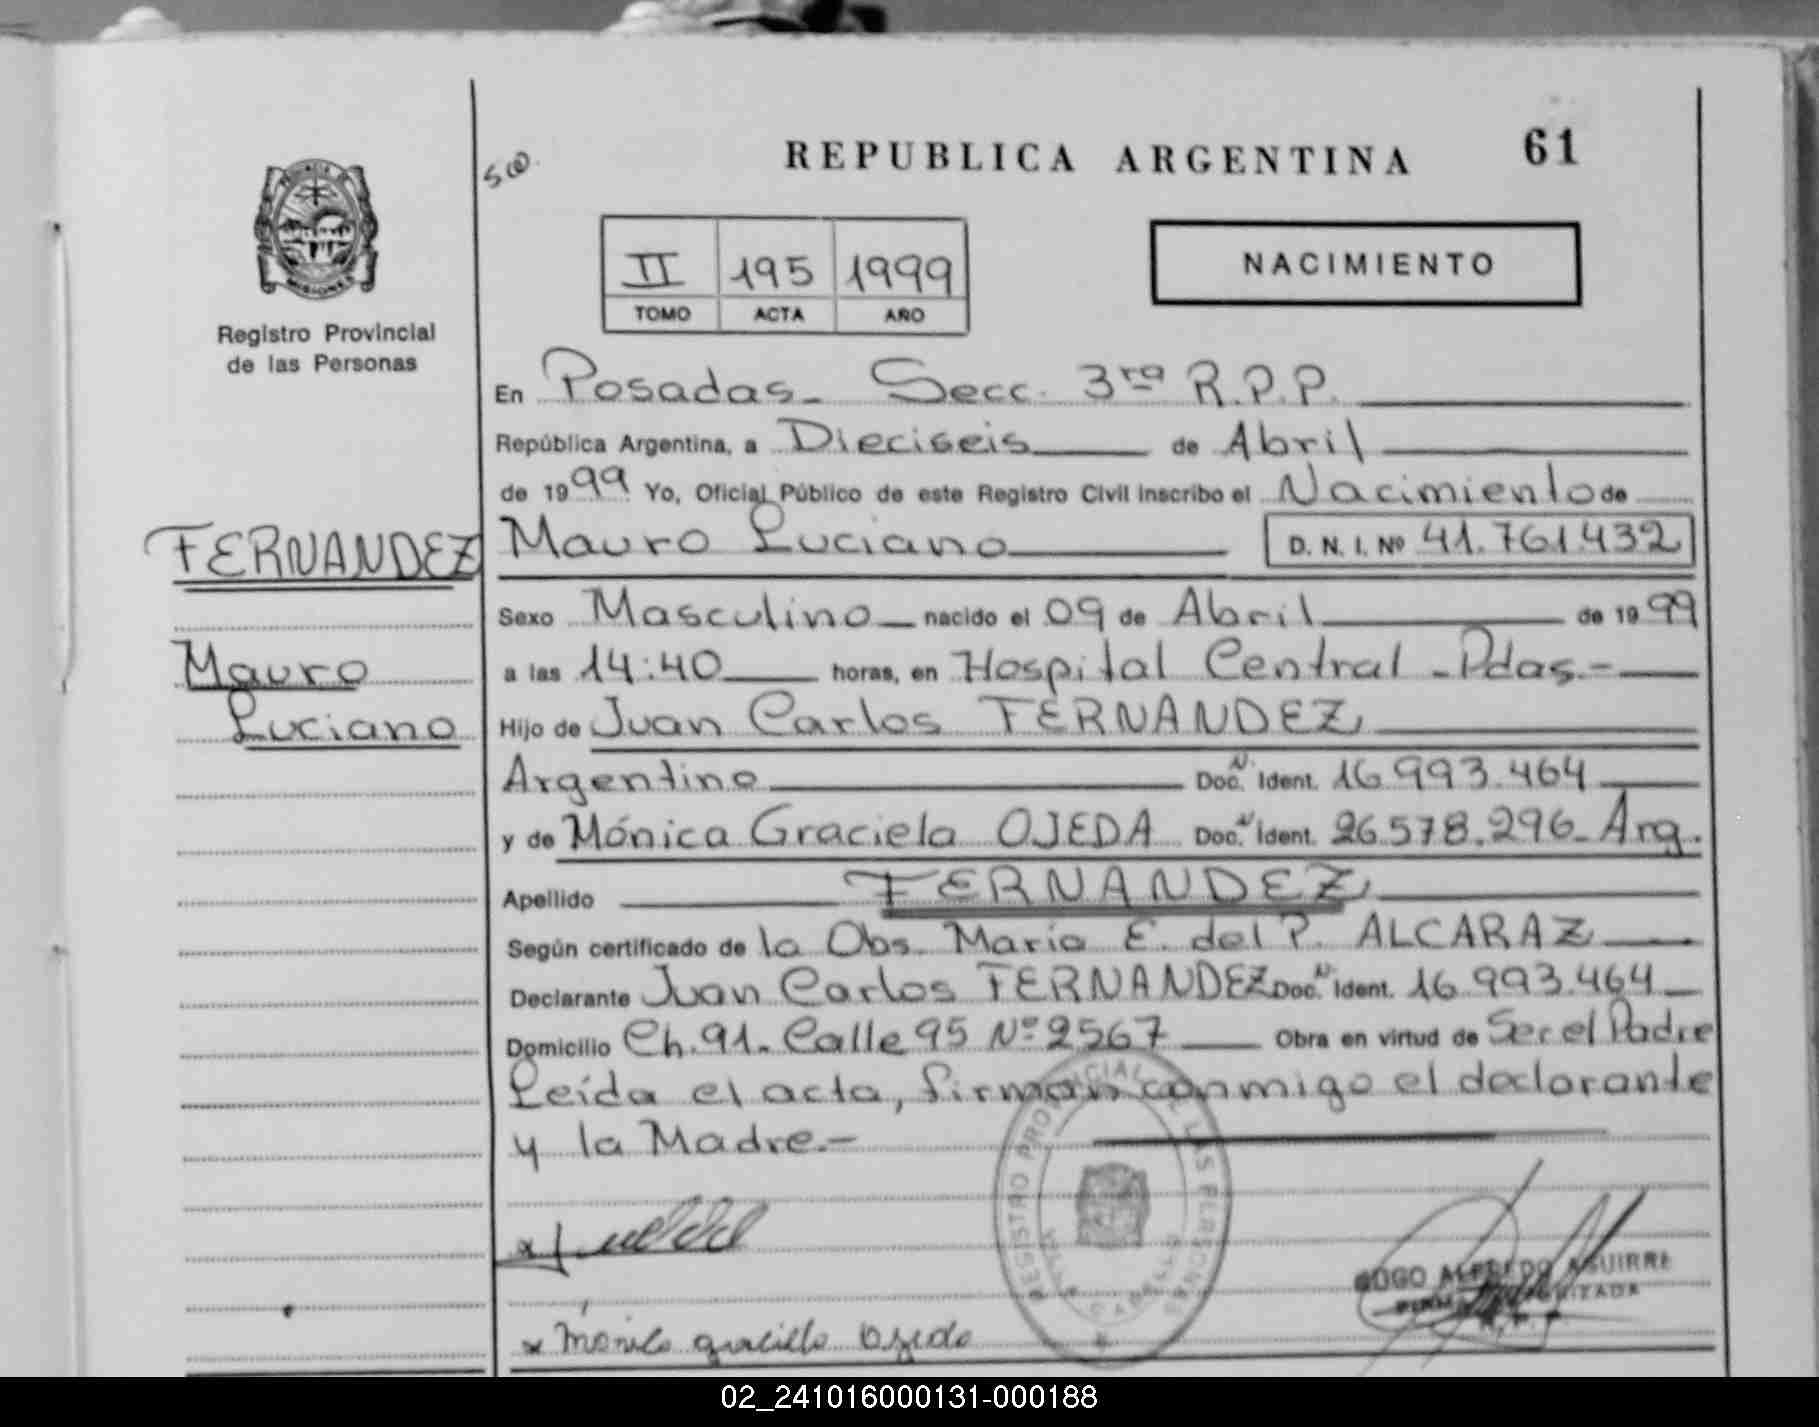 REPUBLICA ARGENTINA 61
MISIONES
Registro Provincial
de las Personas
II 195 1999
TOMO ACTA AÑO
NACIMIENTO
En Posadas - Secc. 3ra R.P.P.
República Argentina, a Dieciseis de Abril
de 1999 Yo, Oficial Público de este Registro Civil inscribo el Nacimiento de
FERNANDEZ
Mauro Luciano D. N. I. Nº 41.761.432
Sexo Masculino nacido el 09 de Abril de 1999
Mauro
a las 14:40 horas, en Hospital Central - Pdas.-
Luciano
Hijo de Juan Carlos FERNANDEZ
Argentino Doc. N. Ident. 16.993.464
y de Mónica Graciela OJEDA Doc. N Ident. 26.578.296 - Arg.
Apellido FERNANDEZ
Según certificado de la Obs. Maria E. del P. ALCARAZ
Declarante Juan Carlos FERNANDEZ Doc. N. Ident. 16.993.464
Domicilio Ch. 91. Calle 95 Nº 2567 Obra en virtud de Ser el Padre
Leída el acta, firman conmigo el declarante
y la Madre.-
REGISTRO PROVINCIAL DE LAS PERSONAS
VILLA CABELLO
ALFREDO AGUIRRE
x Monica graciela Ojeda
02_241016000131-000188